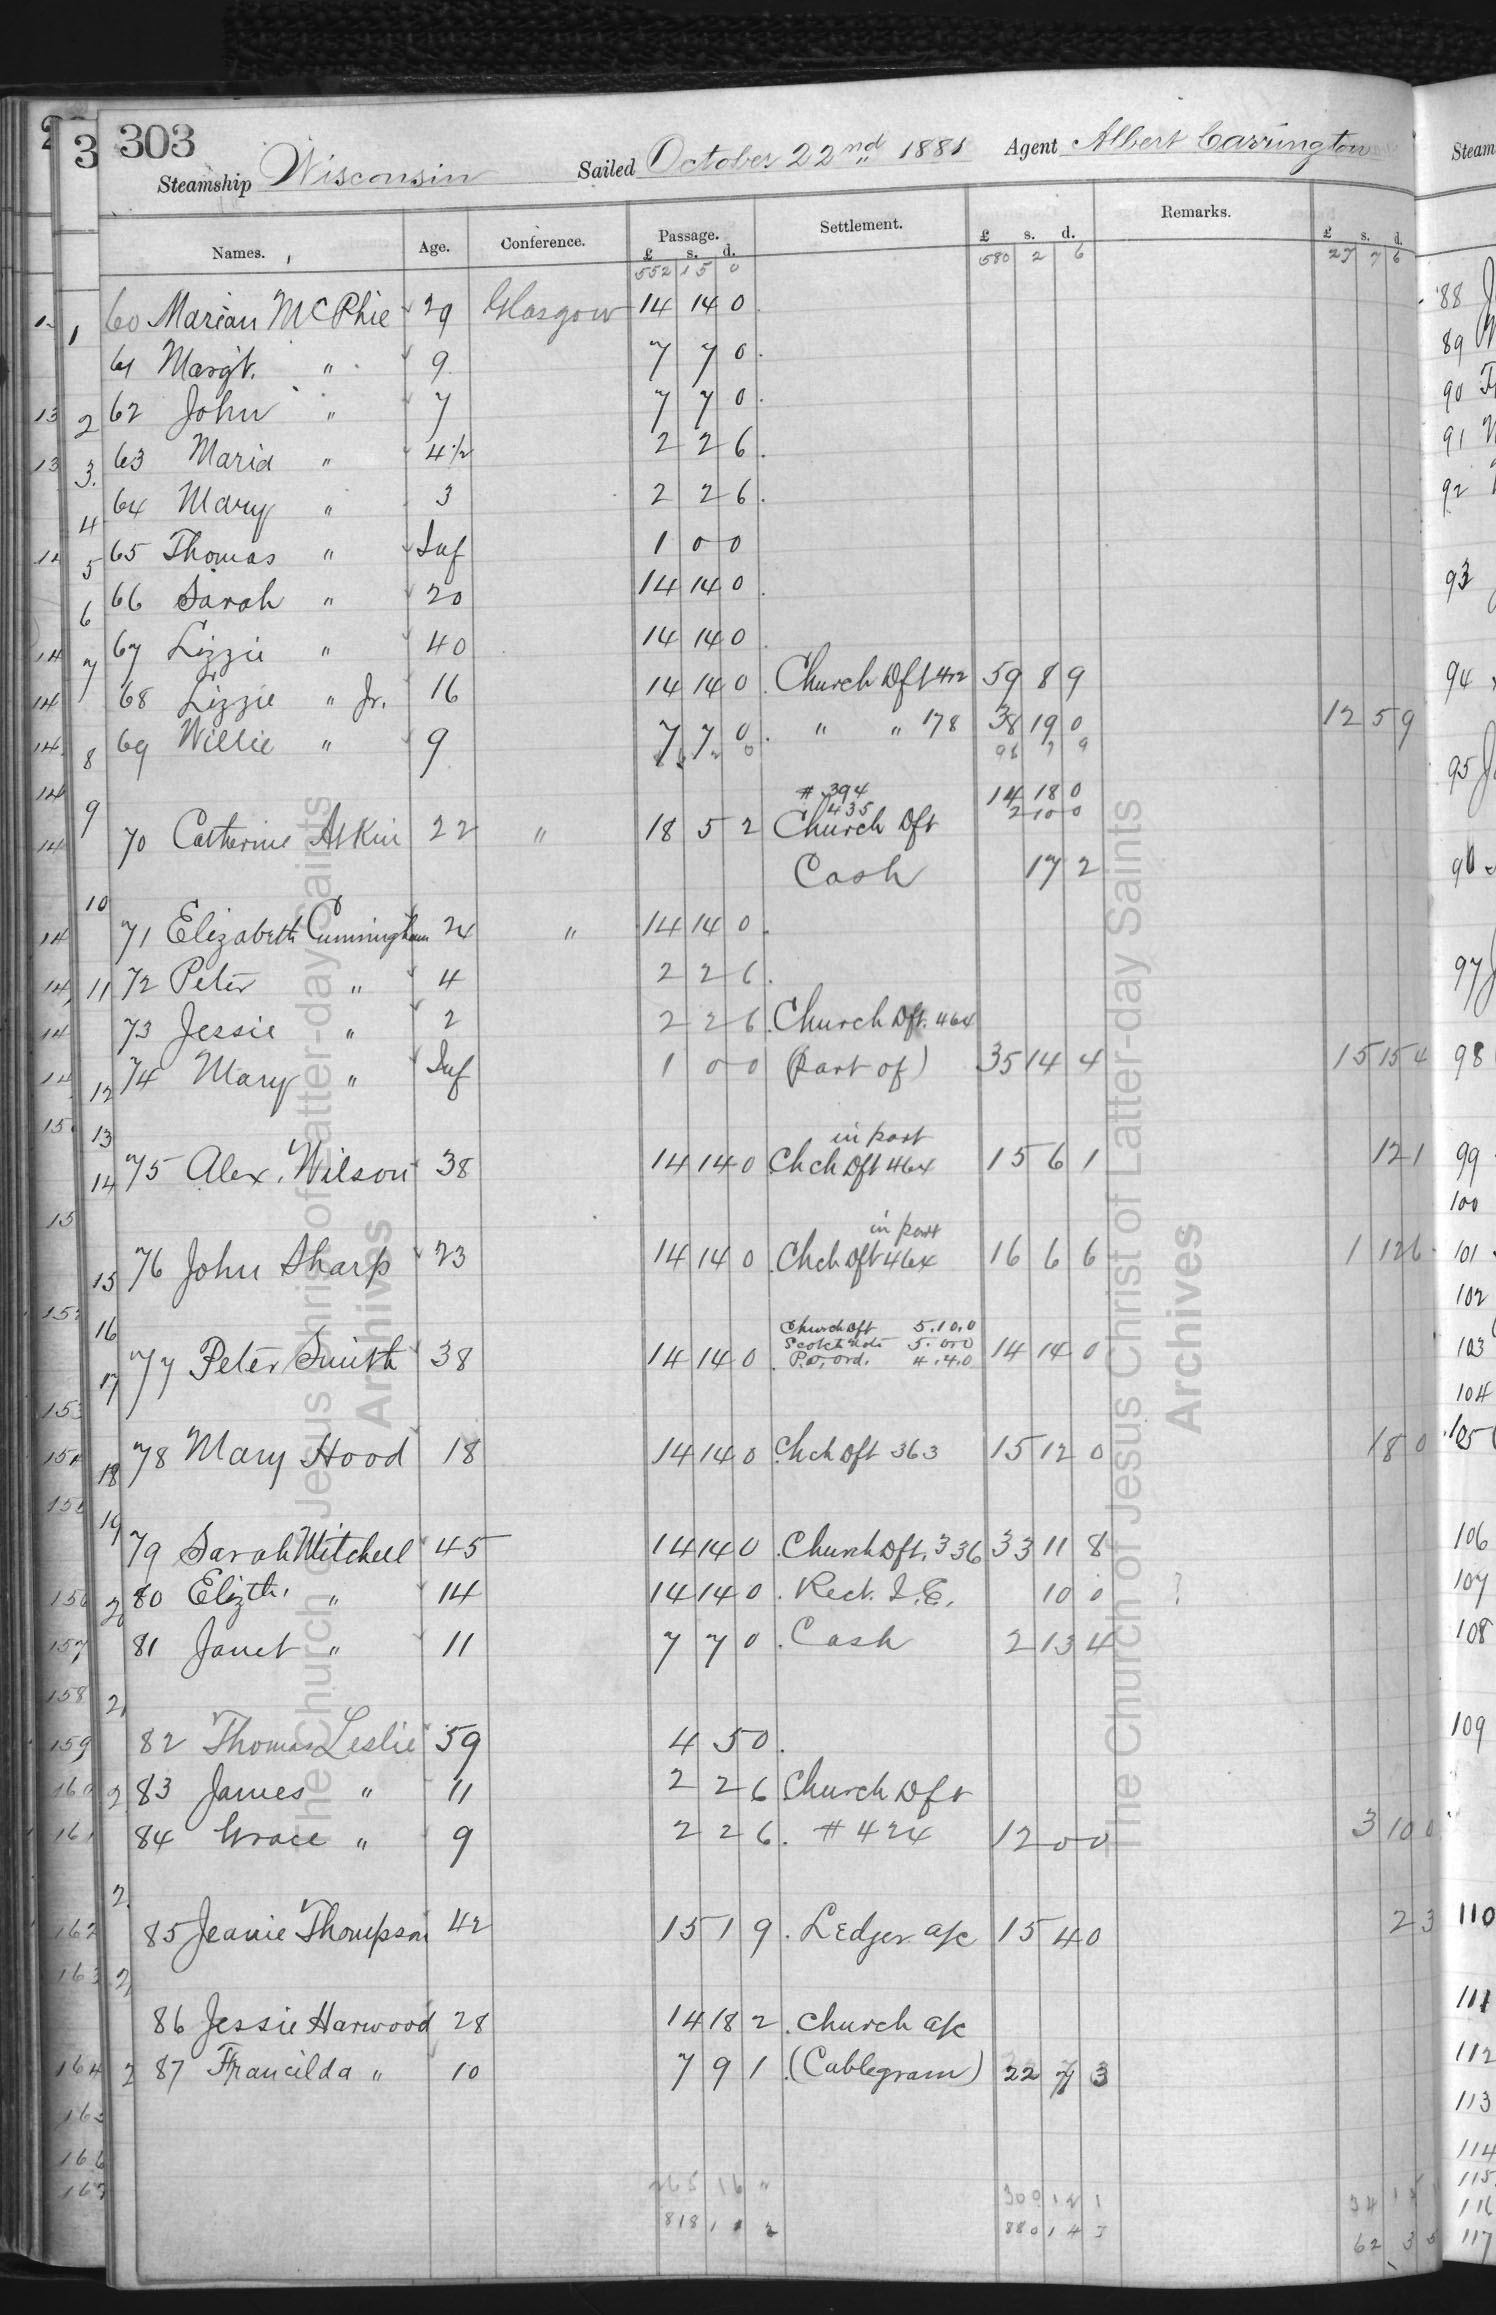 303
Steamship Wisconsin Sailed October 22nd 1881 Agent Albert Carrington
Names. Age. Conference. Passage. Settlement. £ s. d. Remarks. £ s. d.
£ s. d.
552 15 0 580 2 6 27 7 6
60 Marian McPhie 29 Glasgow 14 14 0
61 Margt. " 9 7 7 0
62 John " 7 7 7 0
63 Maria " 4 1/2 2 2 6
64 Mary " 3 2 2 6
65 Thomas " Inf 1 0 0
66 Sarah " 20 14 14 0
67 Lizzie " 40 14 14 0
68 Lizzie " Jr. 16 14 14 0 Church Dft 472 59 8 9
69 Willie " 9 7 7 0 " " 178 38 19 0 12 5 9
# 394 14 18 0
435 2 10 0
70 Catherine Atkin 22 " 18 5 2 Church Dft
Cash 17 2
71 Elizabeth Cunningham 24 " 14 14 0
72 Peter " 4 2 2 6
73 Jessie " 2 2 2 6 Church Dft. 464
74 Mary " Inf 1 0 0 (Part of) 35 14 4 15 15 4
in part
75 Alex. Wilson 38 14 14 0 Chch Dft 464 15 6 1 12 1
in part
76 John Sharp 23 14 14 0 Chch Dft 464 16 6 6 1 12 6
Church Dft 5.10.0
Scotch Note 5.0.0
77 Peter Smith 38 14 14 0 P.O. ord. 4.4.0 14 14 0
78 Mary Hood 18 14 14 0 Chch Dft 363 15 12 0 18 0
79 Sarah Mitchell 45 14 14 0 Church Dft. 336 33 11 8
80 Elizth. " 14 14 14 0 Rect. I.E. 10 0 ?
81 Janet " 11 7 7 0 Cash 2 13 4
82 Thomas Leslie 59 4 5 0
83 James " 11 2 2 6 Church Dft
84 Grace " 9 2 2 6 # 424 12 0 0 3 10 0
85 Jeanie Thompson 42 15 1 9 Ledger a/c 15 4 0 2 3
86 Jessie Harwood 28 14 18 2 Church a/c
87 Francilda " 10 7 9 1 (Cablegram) 22 7 3
265 16 " 300 12 1
818 11 2 880 14 7 62 3 5
The Church of Jesus Christ of Latter-day Saints
Archives
The Church of Jesus Christ of Latter-day Saints
Archives
Steam
88
89
90
91
92
93
94
95
96
97
98
99
100
101
102
103
104
105
106
107
108
109
110
111
112
113
114
115
116
117